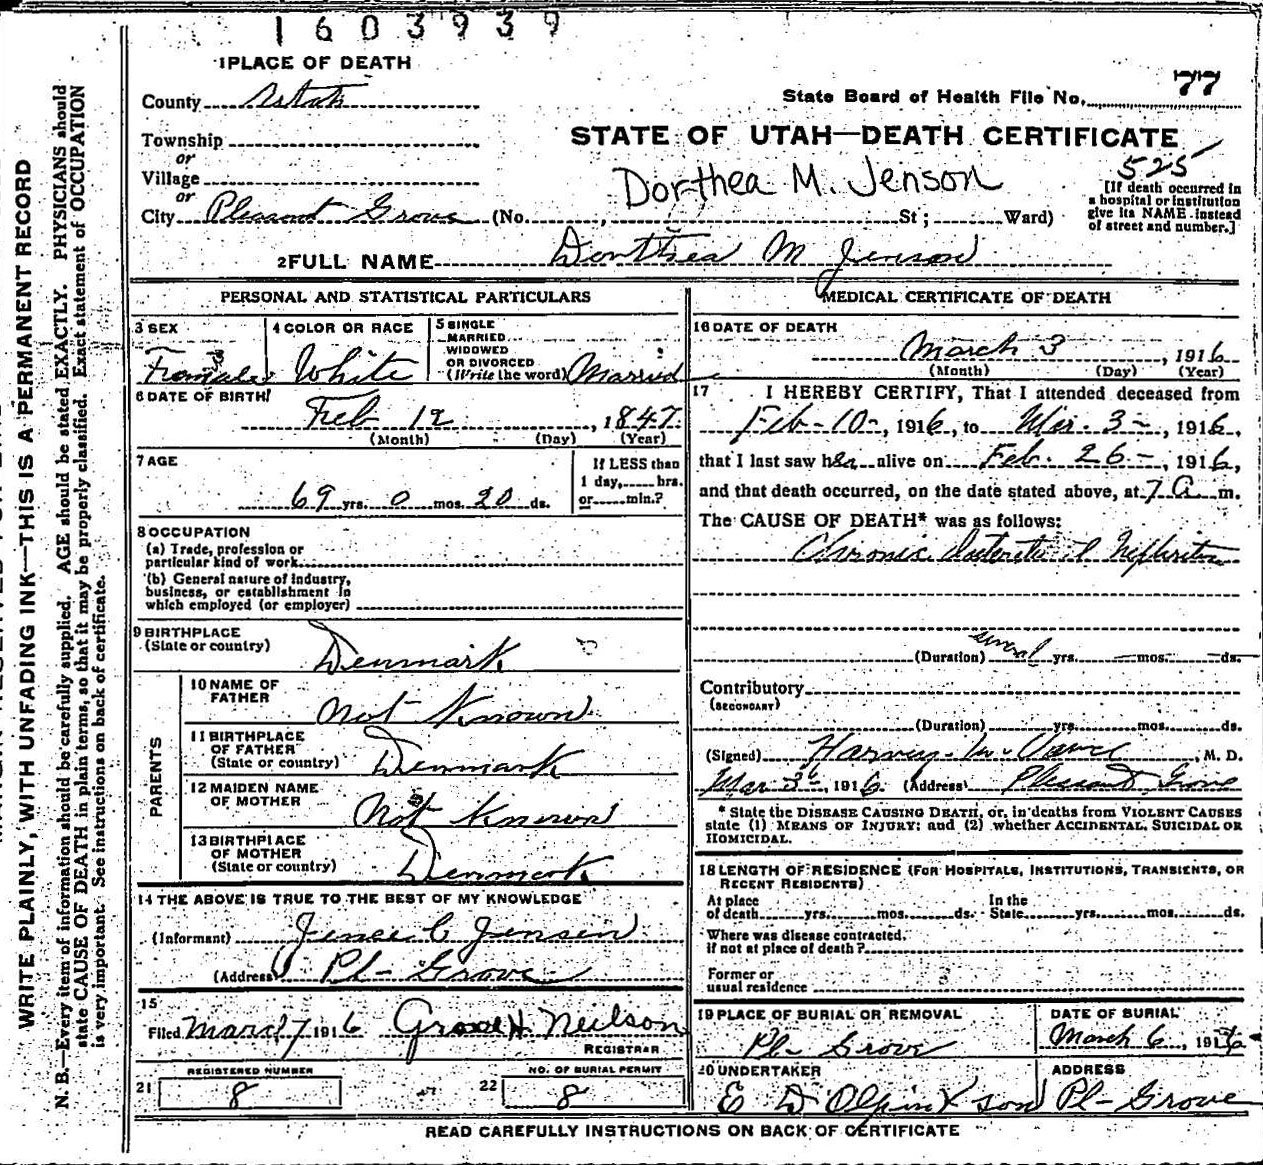 1603939
1 PLACE OF DEATH
County Utah
State Board of Health File No. 77
Township
or
Village
or
City Pleasant Grove (No. , St; Ward)
STATE OF UTAH—DEATH CERTIFICATE
525
Dorthea M. Jenson
[If death occurred in
a hospital or institution
give its NAME instead
of street and number.]
2 FULL NAME Dorthea M Jenson
PERSONAL AND STATISTICAL PARTICULARS
3 SEX
Female
4 COLOR OR RACE
White
5 SINGLE
MARRIED
WIDOWED
OR DIVORCED
(Write the word) Married
6 DATE OF BIRTH
Feb 12, 1847
(Month) (Day) (Year)
7 AGE
69 yrs. 0 mos. 20 ds.
If LESS than
1 day, hrs.
or min.?
8 OCCUPATION
(a) Trade, profession or
particular kind of work
(b) General nature of industry,
business, or establishment in
which employed (or employer)
9 BIRTHPLACE
(State or country) Denmark
PARENTS
10 NAME OF
FATHER Not Known
11 BIRTHPLACE
OF FATHER
(State or country) Denmark
12 MAIDEN NAME
OF MOTHER Not Known
13 BIRTHPLACE
OF MOTHER
(State or country) Denmark
14 THE ABOVE IS TRUE TO THE BEST OF MY KNOWLEDGE
(Informant) C Jensen
(Address) Pl- Grove
15
Filed March 7 1916 Grove H. Neilson
REGISTRAR
21 REGISTERED NUMBER
8
22 NO. OF BURIAL PERMIT
8
MEDICAL CERTIFICATE OF DEATH
16 DATE OF DEATH
March 3, 1916
(Month) (Day) (Year)
17 I HEREBY CERTIFY, That I attended deceased from
Feb-10-, 1916, to Mar. 3-, 1916,
that I last saw her alive on Feb. 26-, 1916,
and that death occurred, on the date stated above, at 7 A m.
The CAUSE OF DEATH* was as follows:
Chronic Interstitial Nephritis
(Duration) several yrs. — mos. — ds.
Contributory
(SECONDARY)
(Duration) yrs. mos. ds.
(Signed) Harvey , M. D.
Mar 3d, 1916 (Address) Pleasant Grove
* State the DISEASE CAUSING DEATH, or, in deaths from VIOLENT CAUSES
state (1) MEANS OF INJURY; and (2) whether ACCIDENTAL, SUICIDAL OR
HOMICIDAL.
18 LENGTH OF RESIDENCE (FOR HOSPITALS, INSTITUTIONS, TRANSIENTS, OR
RECENT RESIDENTS)
At place
of death yrs. mos. ds. In the
State yrs. mos. ds.
Where was disease contracted,
if not at place of death?
Former or
usual residence
19 PLACE OF BURIAL OR REMOVAL
Pl- Grove
DATE OF BURIAL
March 6, 1916
20 UNDERTAKER
E D Olpin & son
ADDRESS
Pl- Grove
READ CAREFULLY INSTRUCTIONS ON BACK OF CERTIFICATE
WRITE PLAINLY, WITH UNFADING INK—THIS IS A PERMANENT RECORD
N. B.—Every item of information should be carefully supplied. AGE should be stated EXACTLY. PHYSICIANS should
state CAUSE OF DEATH in plain terms, so that it may be properly classified. Exact statement of OCCUPATION
is very important. See instructions on back of certificate.